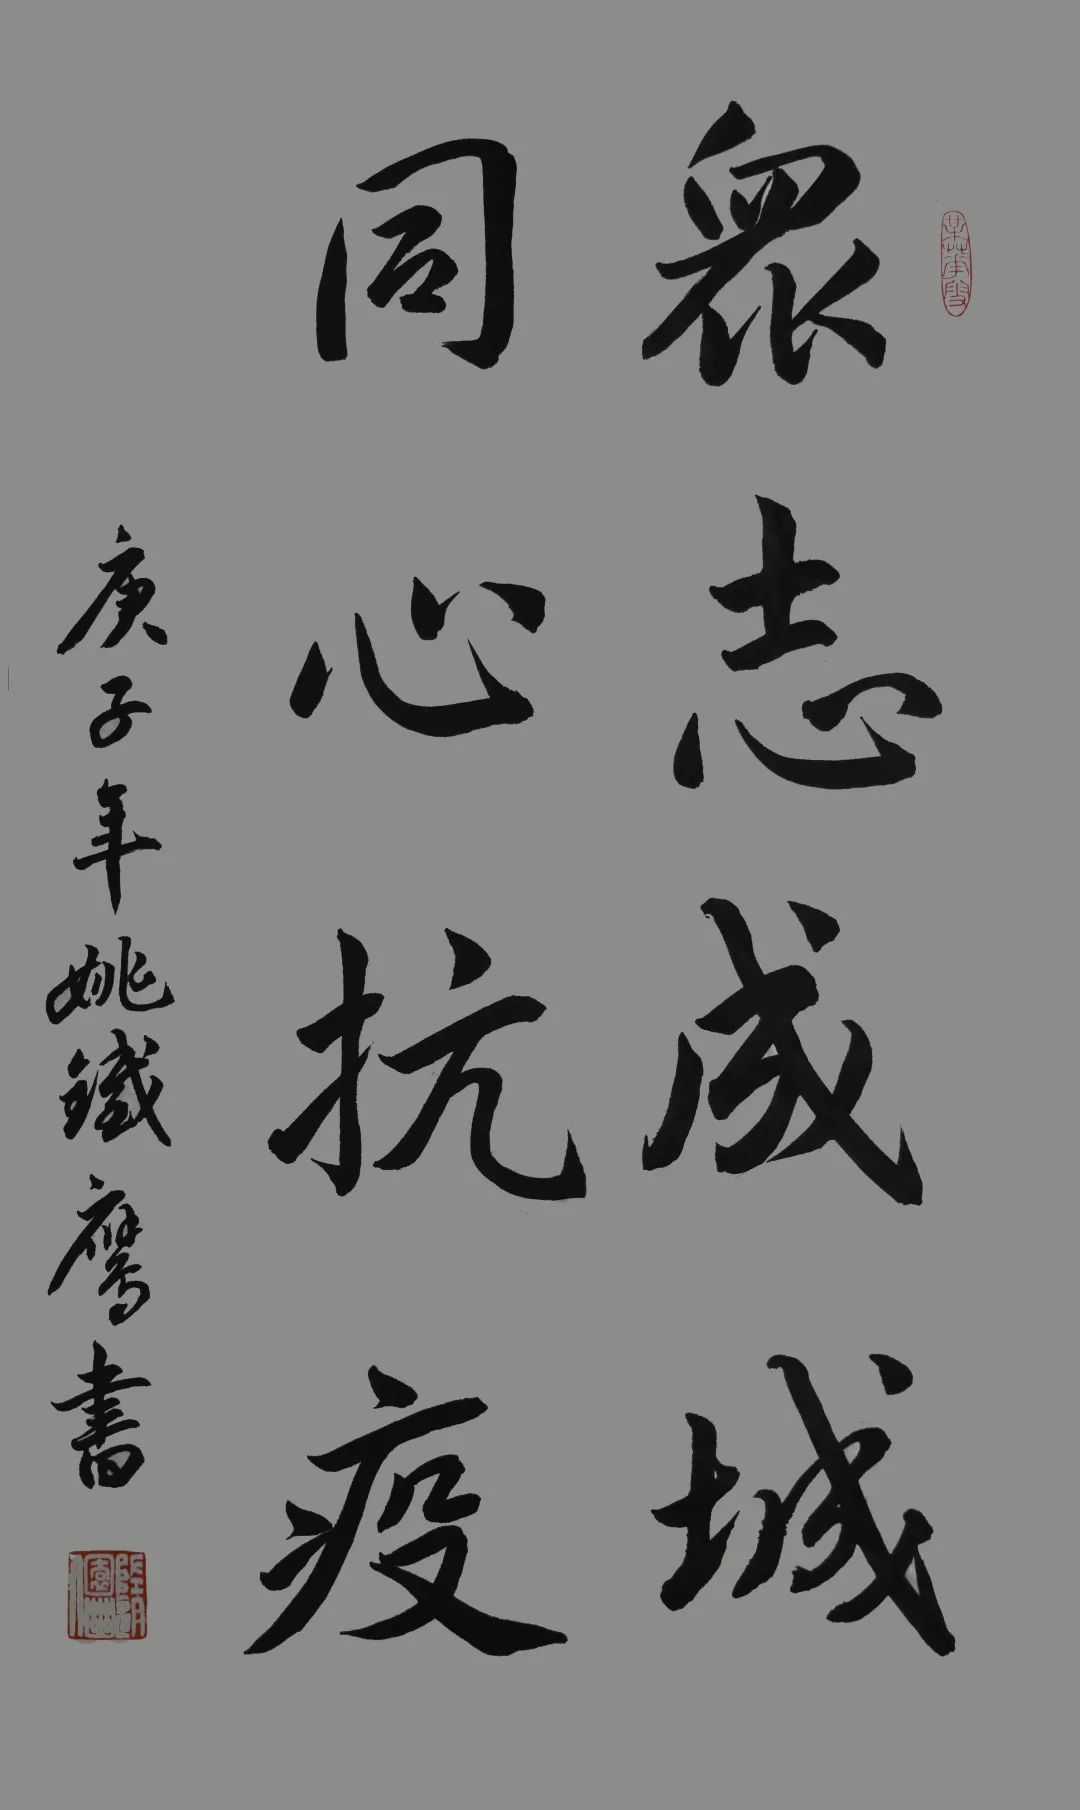 眾志成城
同心抗疫
庚子年姚鐵鹰書